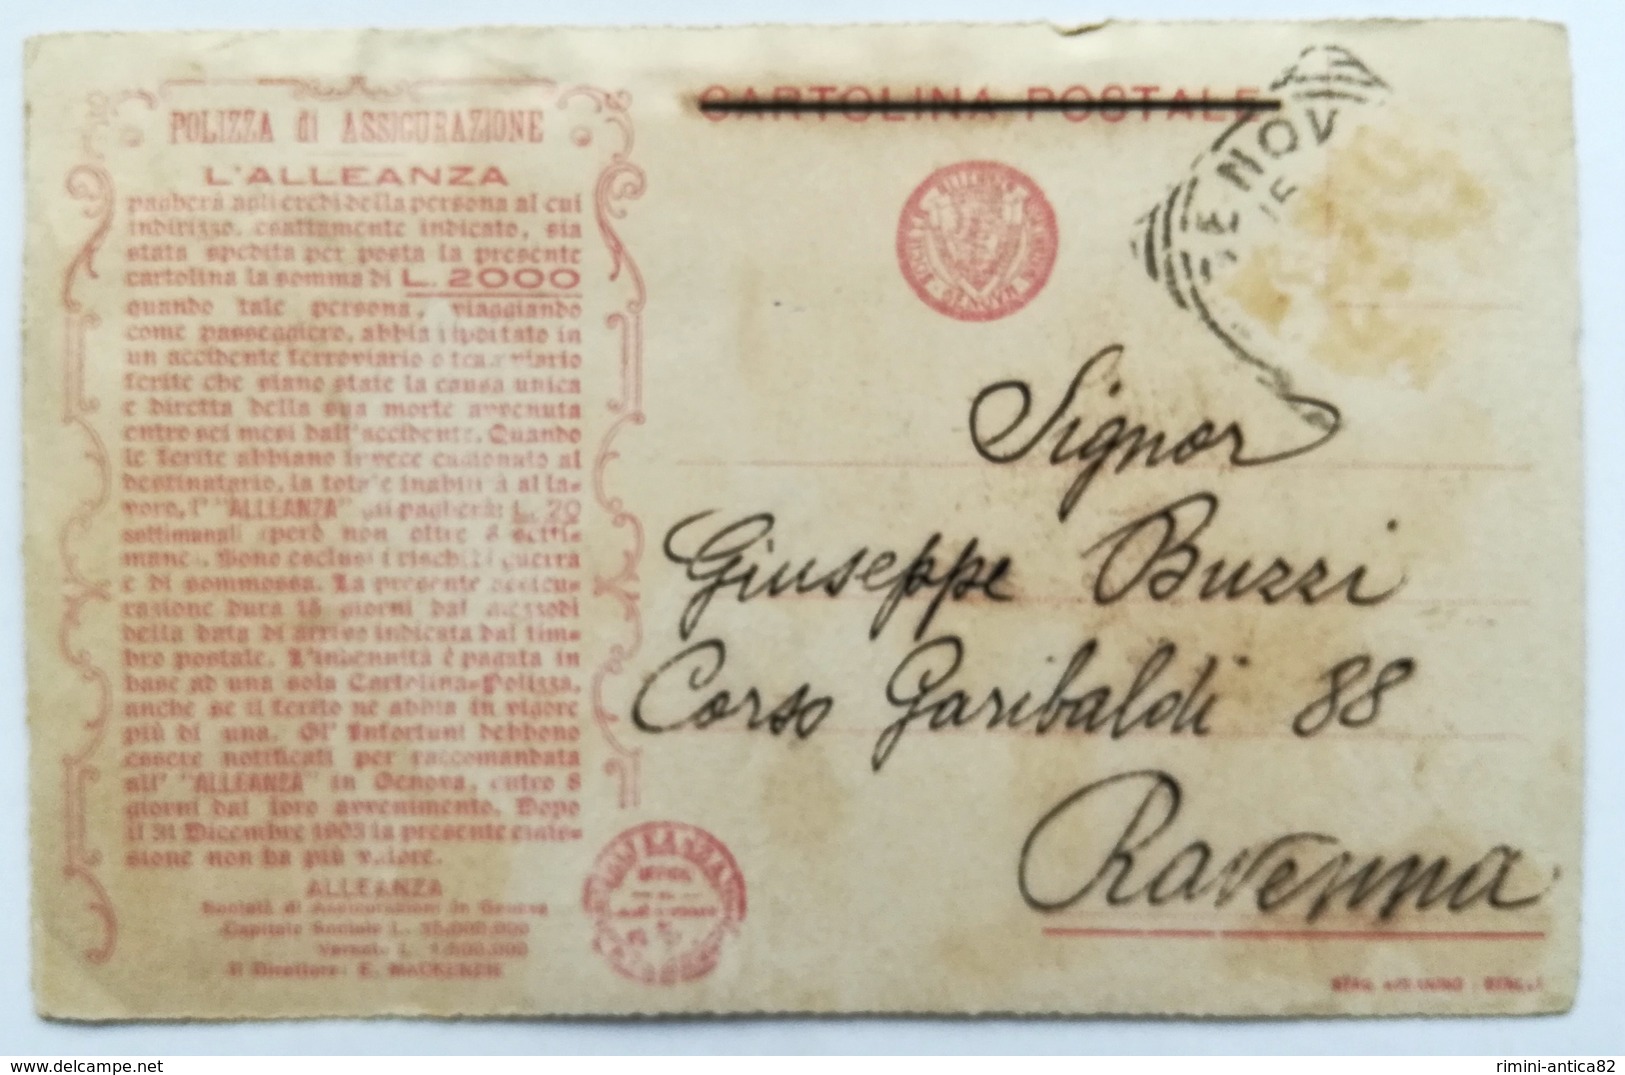 POLIZZA di ASSICURAZIONE
L'ALLEANZA
pagherà agli eredi della persona al cui
indirizzo, esattamente indicato, sia
stata spedita per posta la presente
cartolina la somma di L. 2000
quando tale persona, viaggiando
come passeggiero, abbia riportato in
un accidente ferroviario o tramviario
ferite che siano state la causa unica
e diretta della sua morte avvenuta
entro sei mesi dall'accidente. Quando
le ferite abbiano invece cagionato al
destinatario, la totale inabilità al la-
voro, l' "ALLEANZA" gli pagherà: L. 20
settimanali (però non oltre 8 setti-
mane). Sono esclusi i rischi di guerra
e di sommossa. La presente assicu-
razione dura 15 giorni dal mezzodì
della data di arrivo indicata dal tim-
bro postale. L'indennità è pagata in
base ad una sola Cartolina-Polizza,
anche se il ferito ne abbia in vigore
più di una. Gl' Infortuni debbono
essere notificati per raccomandata
all' "ALLEANZA" in Genova, entro 8
giorni dal loro avvenimento. Dopo
il 31 Dicembre 1903 la presente emis-
sione non ha più valore.
ALLEANZA
Società di Assicurazioni in Genova
Capitale Sociale L.
Versato L.
Il Direttore: E.
CARTOLINA POSTALE
GENOV
15
Signor
Giuseppe Buzzi
Corso Garibaldi 88
Ravenna
rimini-antica82